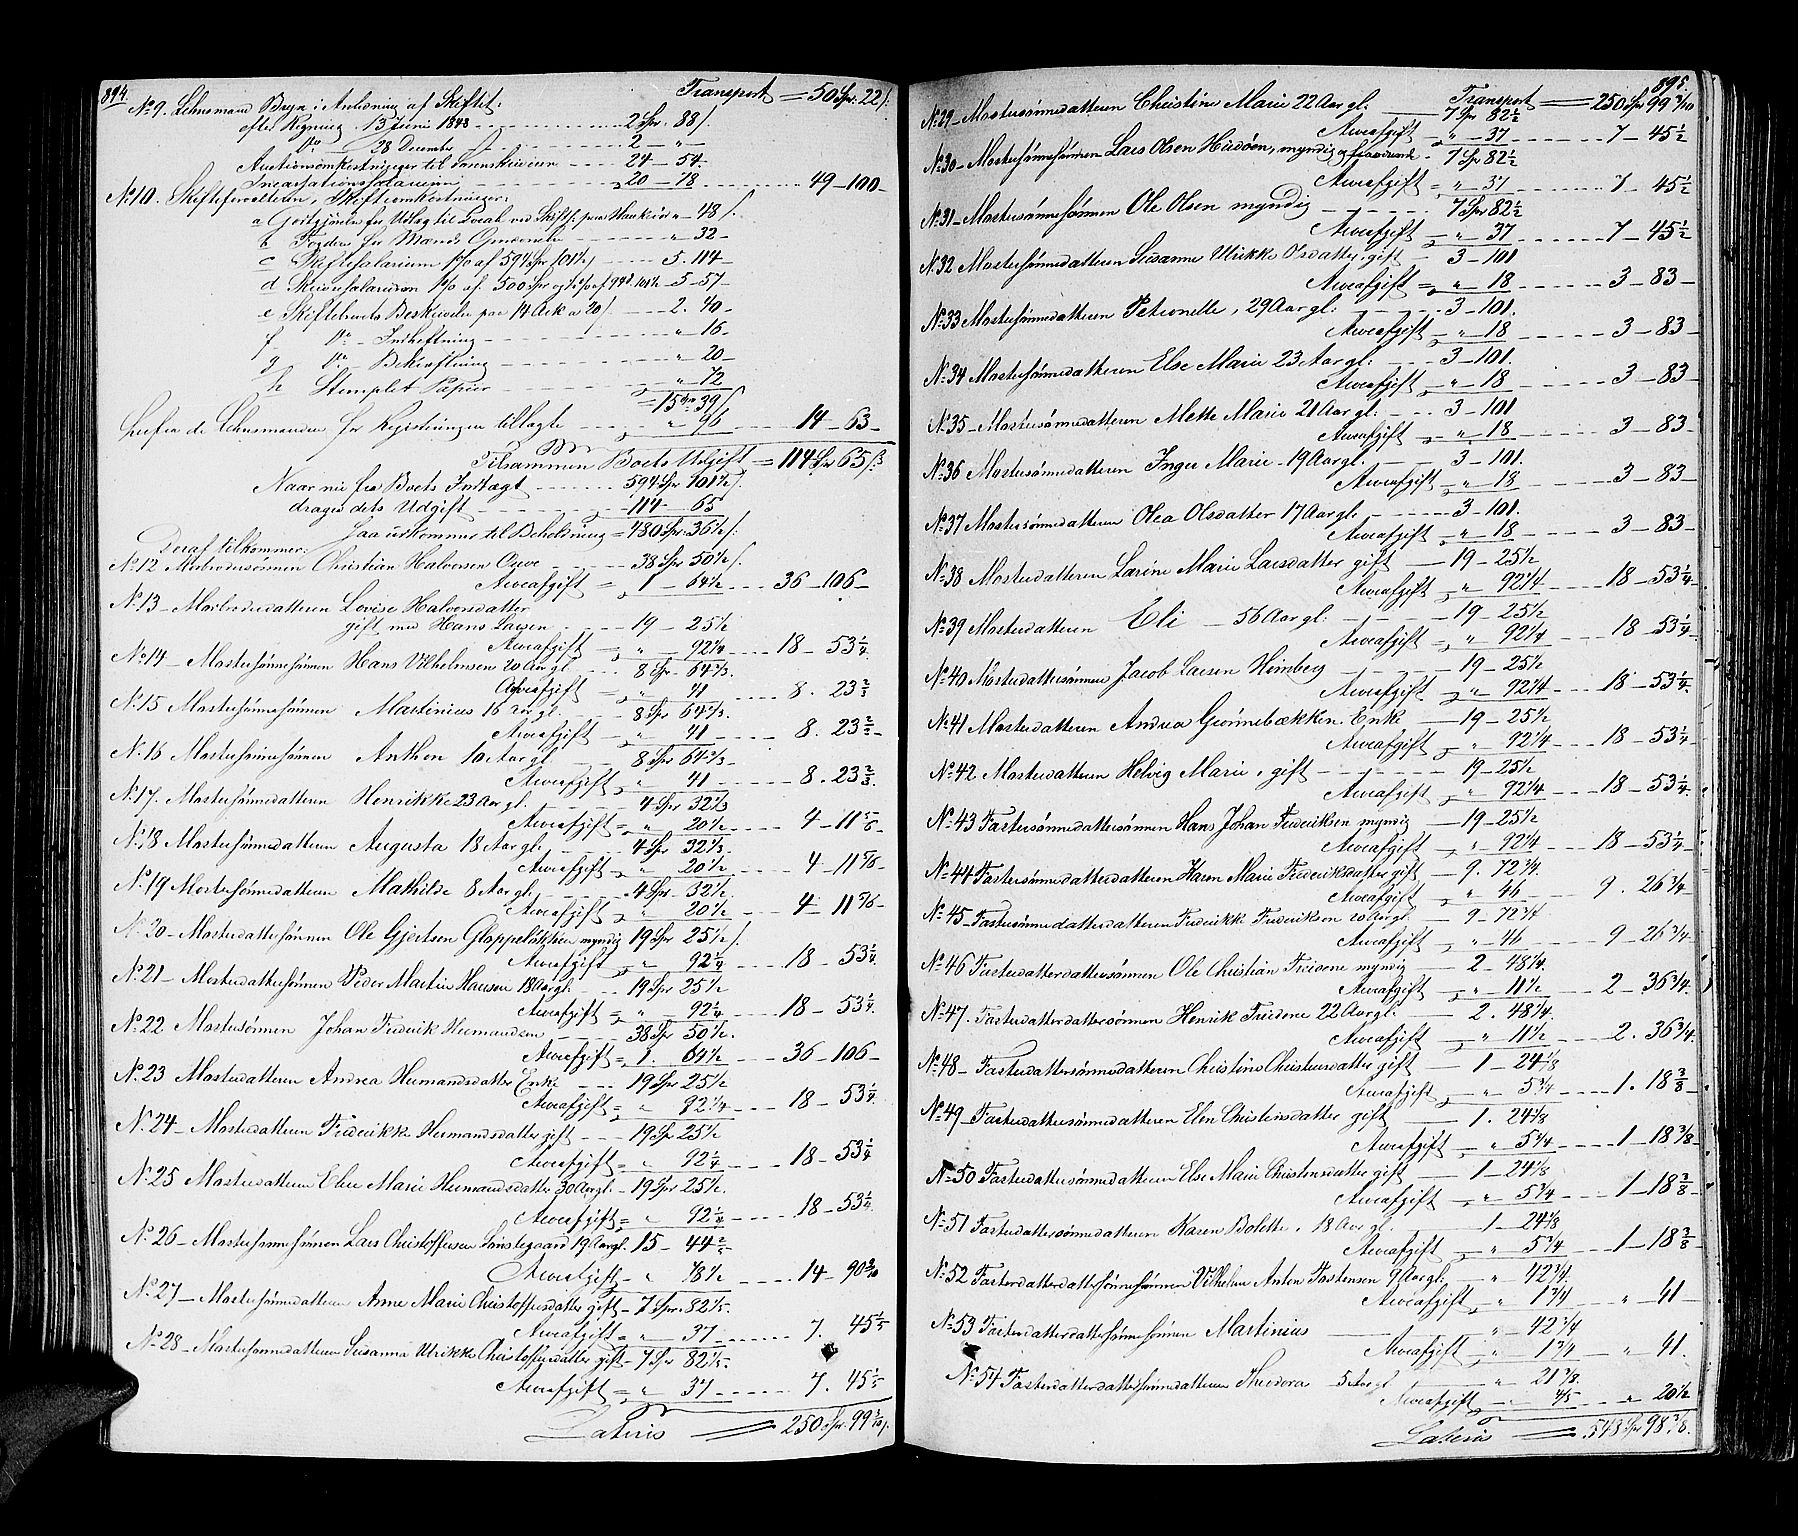 894
Transport = 50 Spr. 22 ß.
No 9. Lehnsmand Bryn i Anledning af Skiftet:
efter Regning 13 Juni 1848 2 Spr. 88 ß.
Do 28 December 2 — " —
Auctionsomkostninger til Sorenskriveren 24 — 54 —
Incassationssalarium 20 — 78 49 — 100 —
No 10. Skifteforvalteren, Skifteomkostninger:
a " — 48 ß.
b " — 32 —
c Skiftesalarium 1 % af 594 Spr 101½ ß 5 . 114 —
d Skriversalarium 1 % af 500 Spr og ½ % af 94 Spr 101½ 5 — 57 —
e Skiftebrevets Beskrivelse paa 14 Ark a 20 ß 2 . 40 —
f Do — Indheftning " — 16 —
g Do — Bekræftning " — 20 —
h Stemplet Papir " — 72
= 15 Spr 39 ß
Herfra de Lehnsmanden for Registreringen tillagte " 96 14 — 63 —
Tilsammen Boets Udgift = 114 Spr 65 ß
Naar nu fra Boets Indtægt 594 Spr 101½ ß.
drages dets Udgift 114 — 65
Saa udkommer til Beholdning = 480 Spr 36½ ß.
Deraf tilkommer:
No 12 Morbrodersønnen Christian Halvorsen 38 Spr 50½ ß.
Arveafgift = 1 — 64½ 36 — 106 —
No 13 — Morbroderdatteren Lovise Halvorsdatter
gift med Hans Larsen 19 — 25½
Arveafgift = " 92¼ 18 — 53¼
No 14 — Mostersønnesønnen Hans Vilhelmsen 20 Aar gl. 8 Spr. 64⅔.
Arveafgift = " 41 8 . 23⅔
No 15 Mostersønnesønnen Martinius 16 Aar gl. 8 Spr 64⅔.
Arveafgift = " 41 8 . 23⅔
No 16 Mostersønnesønnen Anthon 10 Aar gl 8 Spr 64⅔.
Arveafgift " 41 8 . 23⅔
No 17. Mostersønnedatteren Henrikke 23 Aar gl. 4 Spr 32⅓
Arveafgift = " 20½ 4 — 11⅚
No 18 Mostersønnedatteren Augusta 18 Aar gl. 4 Spr 32⅓.
Arveafgift = " 20½ 4 — 11⅚
No 19 Mostersønnedatteren Mathilde 8 Aar gl. 4 Spr. 32⅓.
Arveafgift " 20½ 4 — 11⅚
No 20 — Mosterdattersønnen Ole Gjertsen myndig 19 Spr 25½ ß.
Arveafgift " 92¼ 18 — 53¼
No 21 — Mosterdattersønnen Peder Martin Hansen 18 Aar gl. 19 Spr 25½
Arveafgift = " 92¼ 18 — 53¼
No 22 Mostersønnen Johan Frederik Hermandsen 38 Spr 50½.
Arveafgift = 1. 64½ 36 — 106 —
No 23 Mosterdatteren Andrea Hermandsdatter Enke 19 Spr 25½
Arveafgift = " 92¼ 18 — 53¼
No 24 — Mosterdatteren Frederikke Hermandsdatter gift 19 Spr 25½
Arveafgift = " 92¼ 18 — 53¼
No 25 Mosterdatteren Elen Marie Hermandsdatter 30 Aar gl. — 19 Spr 25½.
Arveafgift = " 92¼ 18 — 53¼
No 26 — Mostersønnesønnen Lars Christoffersen 19 Aar gl. 15 — 44⅖
Arveafgift — " 78½ 14 — 90 9/10
No 27 — Mostersønnedatteren Anne Marie Christoffersdatter gift — 7 Spr. 82⅕.
Arveafgift = " 37 7. 45⅕
No 28 — Mostersønnedatteren Susanna Ulrikke Christoffersdatter gift — 7 Spr 82⅕ —
Arveafgift = " 37 7. 45⅕
Lateris = 250 Spr. 99 3/10 ß.
895.
Transport = 250 Spr 99 3/10
No 29 — Mostersønnedatteren Christine Marie 22 Aar gl. 7 Spr 82½
Arveafgift " — 37 7 — 45½
No 30 — Mostersønnesønnen Lars Olsen, myndig 7 Spr 82½
Arveafgift = " — 37 7 — 45½
No 31 — Mostersønnesønnen Ole Olsen myndig 7 Spr 82½
Arveafgift " — 37 7 — 45½
No 32 Mostersønnedatteren Susanne Ulrikke Olsdatter, gift 3 — 101
Arveafgift = " — 18 3 — 83 —
No 33 Mostersønnedatteren Petronelle, 29 Aar gl: 3 — 101.
Arveafgift " — 18 3 — 83 —
No 34 Mostersønnedatteren Else Marie 23 Aar gl: 3 — 101.
Arveafgift " — 18 3 — 83 —
No 35 — Mostersønnedatteren Mette Marie 21 Aar gl: 3 — 101
Arveafgift " — 18 3 — 83 —
No 36 Mostersønnedatteren Inger Marie — 19 Aar gl. 3 — 101.
Arveafgift " — 18 3 — 83 —
No 37 Mostersønnedatteren Olea Olsdatter 17 Aar gl. 3 — 101.
Arveafgift = " — 18 3 — 83 —
No 38 Mosterdatteren Larine Marie Larsdatter gift — 19 — 25½
Arveafgift " 92¼ 18 — 53¼
No 39 Mosterdatteren Eli — 56 Aar gl. 19 — 25½
Arveafgift " 92¼ 18 — 53¼
No 40 Mosterdattersønnen Jacob Larsen 19 — 25½
Arveafgift " 92¼ 18 — 53¼
No 41 Mosterdatteren Andrea Grønnebækken. Enke — 19 — 25½
Arveafgift " 92¼ 18 — 53¼
No 42 Mosterdatteren Helvig Marie, gift 19 — 25½
Arveafgift " 92¼ 18 — 53¼
No 43 Fastersønnedattersønnen Hans Johan Frederiksen myndig — 19 — 25½
Arveafgift " 92¼ 18 — 53¼
No 44 Fastersønnedatterdatteren Karen Marie Frederiksdatter gift — 9. 72¾
Arveafgift " 46 9 . 26¾
No 45 — Fastersønnedatterdatteren Frederikke Frederiksen 20 Aar gl. — 9 — 72¾
Arveafgift " — 46 9 — 26¾
No 46 Fasterdatterdattersønnen Ole Christian myndig 2 — 48¼.
Arveafgift " — 11½ 2 — 36¾.
No 47. Fasterdatterdattersønnen Henrik 22 Aar gl. 2. 48¼.
Arveafgift " — 11½ 2. 36¾
No 48 — Fasterdattersønnedatteren Christine Christensdatter gift — 1 — 24⅛
Arveafgift " 5¾ 1. 18⅜
No 49 — Fasterdattersønnedatteren Elen Christensdatter gift 1. 24⅛
Arveafgift " 5¾ 1 — 18⅜
No 50 Fasterdattersønnedatteren Else Marie Christensdatter gift 1 — 24⅛
Arveafgift " 5¾ 1 — 18⅜
No 51 Fasterdattersønnedatteren Karen Bolette, 18 Aar gl. 1 — 24⅛
Arveafgift " 5¾ 1 — 18⅜
No 52 Fasterdatterdattersønnesønnen Vilhelm Anton Torstensen 9 Aar gl. " 42¾.
Arveafgift " 1¾ " 41 —
No 53 Fasterdatterdattersønnesønnen Martinius " — 42¾
Arveafgift " 1¾ " 41.
No 54 Fasterdatterdattersønnedatteren Theodora 5 Aar gl " 21⅜.
Arveafgift " ⅘ " 20½
Lateris = 548 Spr 98⅜.